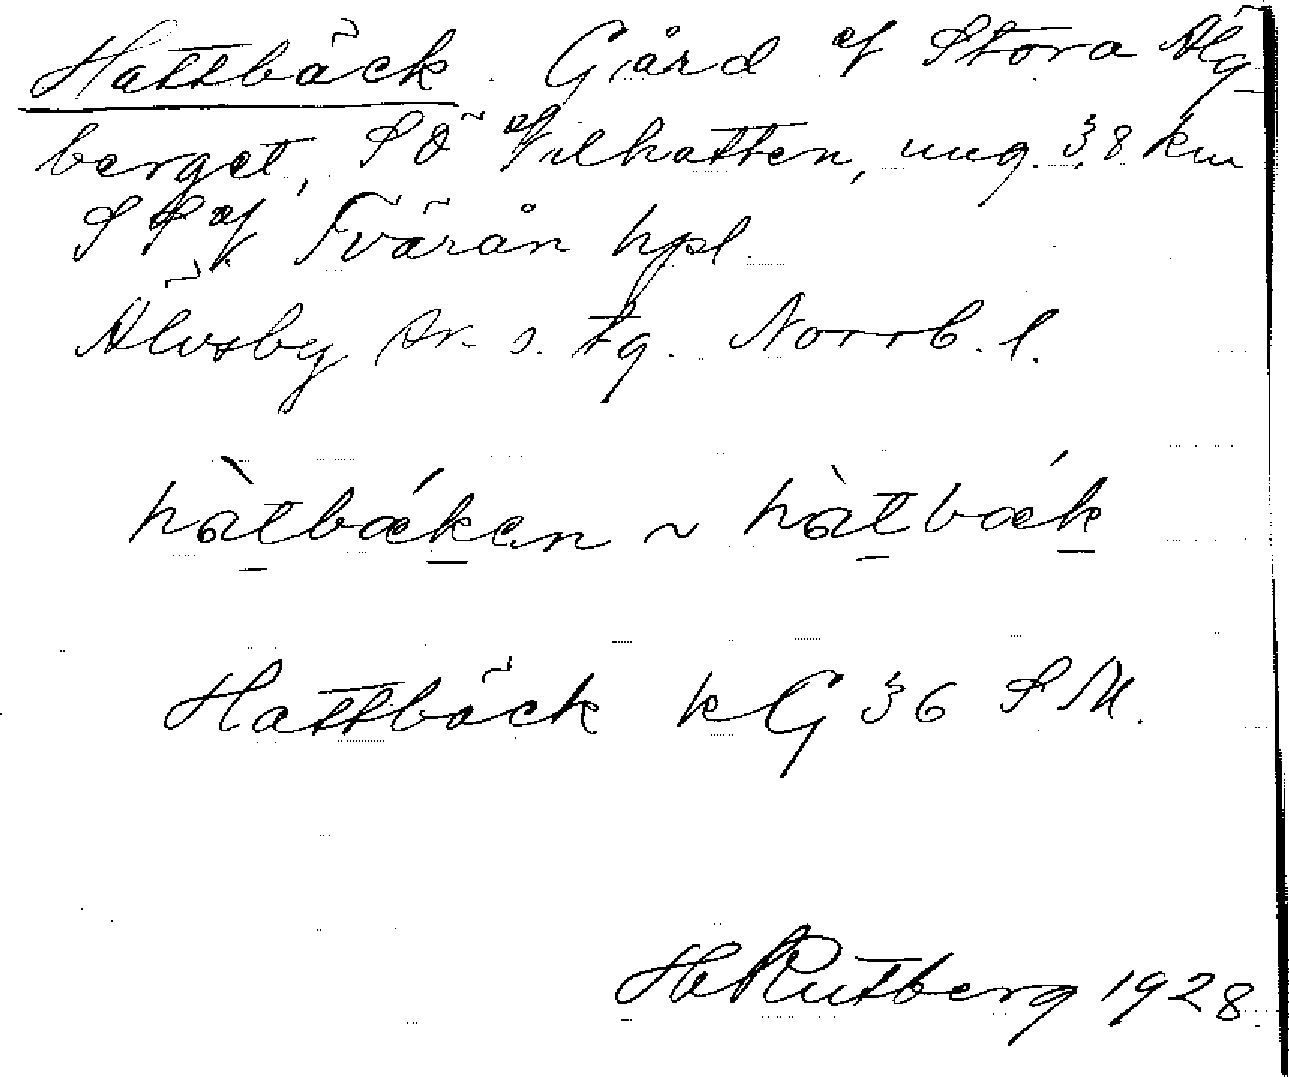 Hattbäck. Gård åf Stora Älg-
berget, SÖ åf Vilhatten, ung. 3,8 km
SS åf Tvärån hpl.
Älvsby sn. s. tg. Norrb. l.
hàtbǽken ~ hàtbǽk
Hattbäck kG 36 SM.
H Rutberg 1928